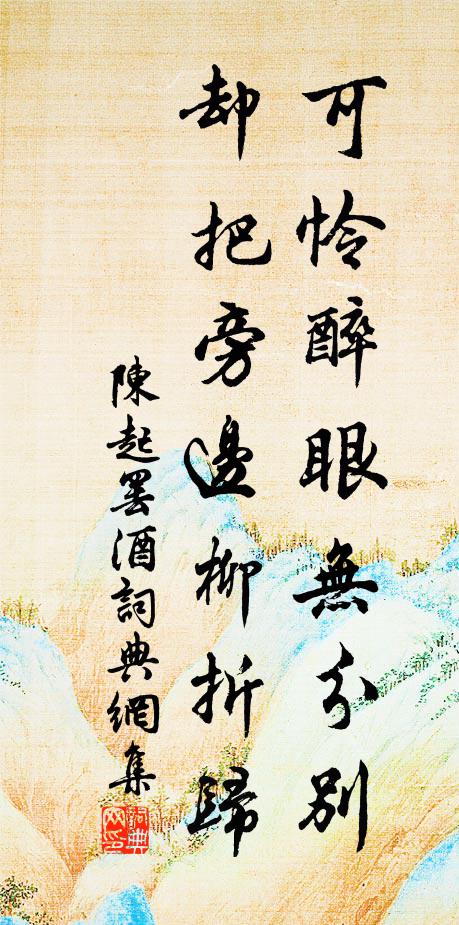 可怜醉眼無分別
却把旁邊柳折歸
陳起罢酒詞典網集
詞典網印